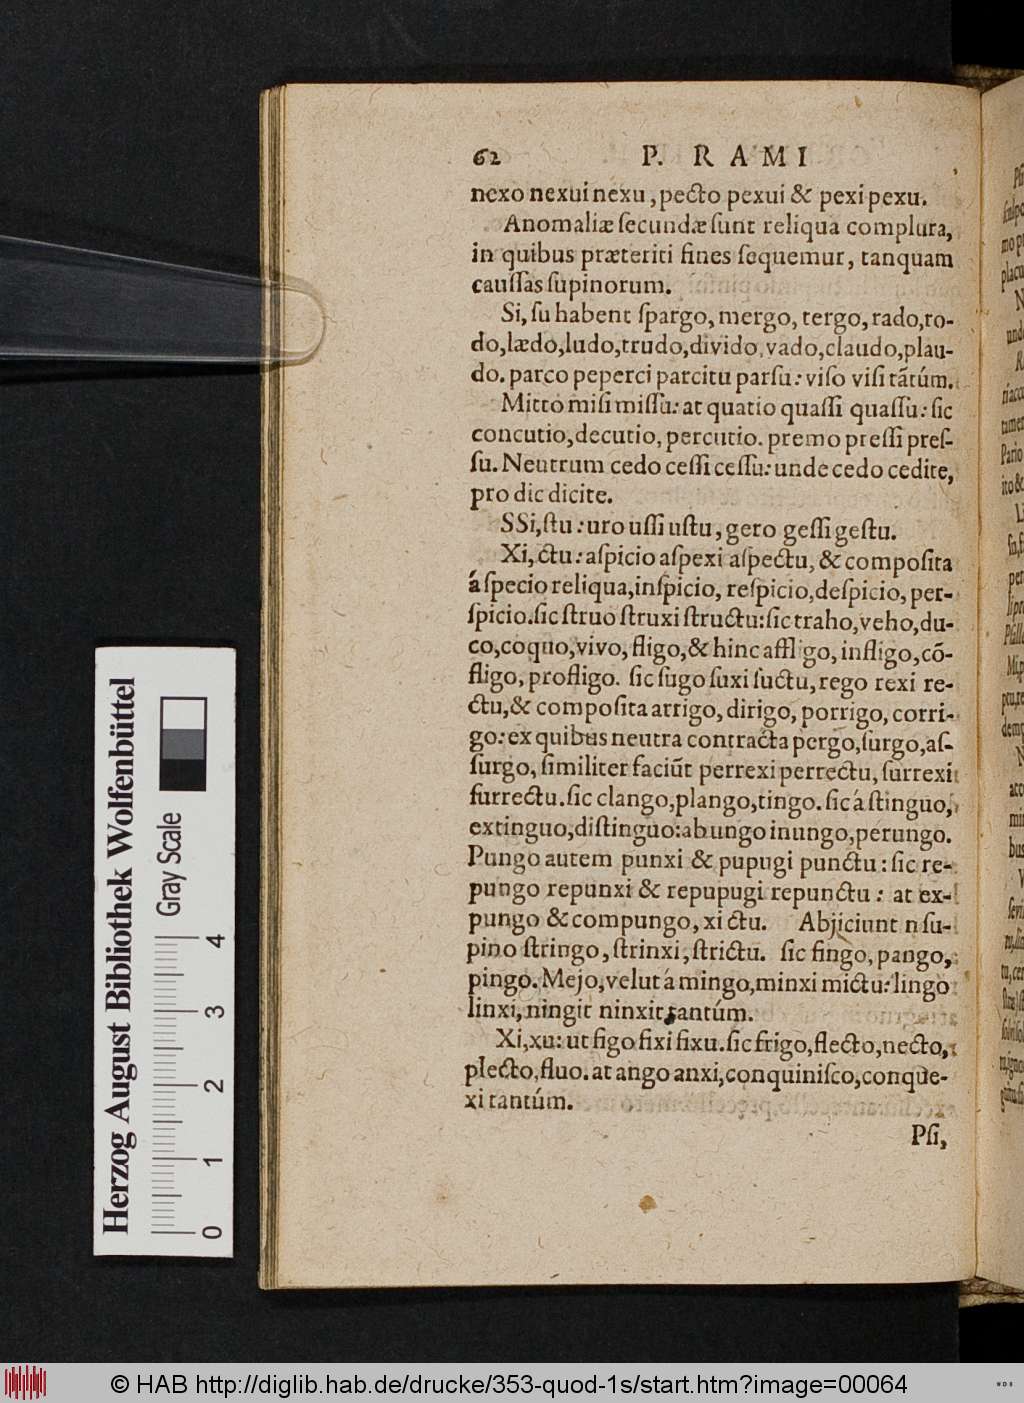 62 P. RAMI
nexo nexui nexu, pecto pexui & pexi pexu.
Anomaliæ ſecundæ ſunt reliqua complura,
in quibus præteriti fines ſequemur, tanquam
cauſſas ſupinorum.
Si, ſu habent ſpargo, mergo, tergo, rado, ro-
do, lædo, ludo, trudo, divido, vado, claudo, plau-
do. parco peperci parcitu parſu: viſo viſi tãtúm.
Mitto miſi miſſu: at quatio quaſſi quaſſu: ſic
concutio, decutio, percutio. premo preſſi preſ-
ſu. Neutrum cedo ceſſi ceſſu: unde cedo cedite,
pro dic dicite.
SSi, ſtu: uro uſſi uſtu, gero geſſi geſtu.
Xi, ctu: aſpicio aſpexi aſpectu, & compoſita
á ſpecio reliqua, inſpicio, reſpicio, deſpicio, per-
ſpicio. ſic ſtruo ſtruxi ſtructu: ſic traho, veho, du-
co, coquo, vivo, fligo, & hinc affligo, infligo, cõ-
fligo, profligo. ſic ſugo ſuxi ſuctu, rego rexi re-
ctu, & compoſita arrigo, dirigo, porrigo, corri-
go: ex quibus neutra contracta pergo, ſurgo, aſ-
ſurgo, ſimiliter faciũt perrexi perrectu, ſurrexi
ſurrectu. ſic clango, plango, tingo. ſic á ſtinguo,
extinguo, diſtinguo: ab ungo inungo, perungo.
Pungo autem punxi & pupugi punctu: ſic re-
pungo repunxi & repupugi repunctu: at ex-
pungo & compungo, xi ctu. Abjiciunt n ſu-
pino ſtringo, ſtrinxi, ſtrictu. ſic fingo, pango,
pingo. Mejo, velut á mingo, minxi mictu: lingo
linxi, ningit ninxit tantúm.
Xi, xu: ut figo fixi fixu. ſic frigo, flecto, necto,
plecto, fluo. at ango anxi, conquiniſco, conque-
xi tantúm.
Pſi,
Herzog August Bibliothek Wolfenbüttel
Gray Scale
0 1 2 3 4
© HAB http://diglib.hab.de/drucke/353-quod-1s/start.htm?image=00064